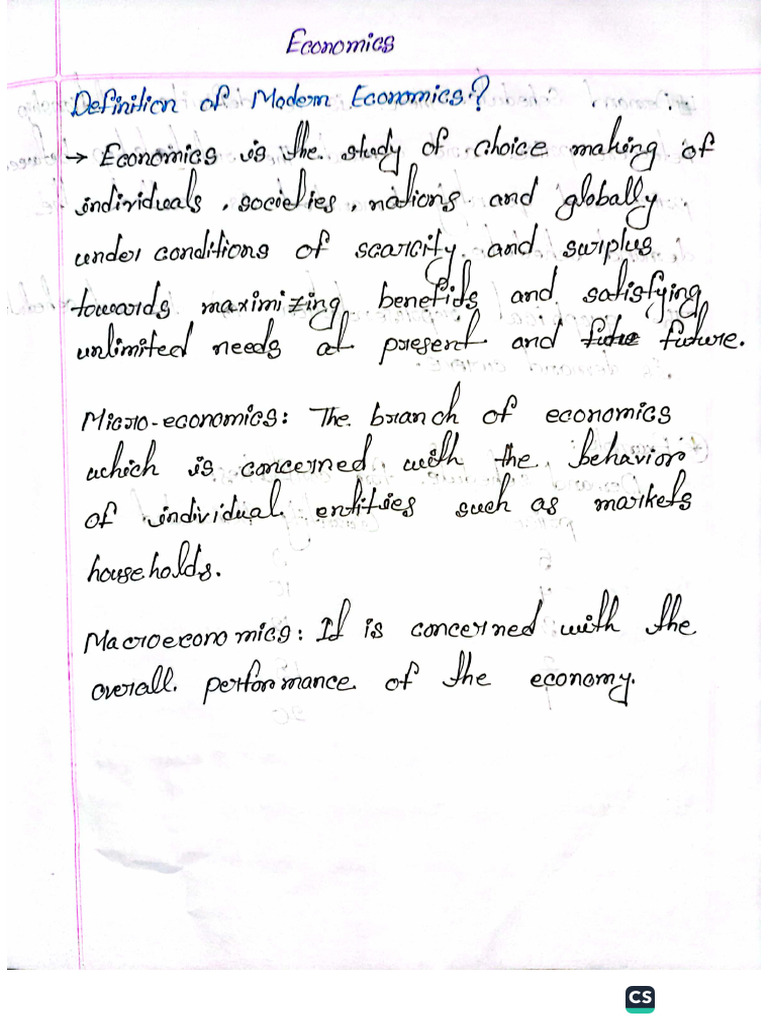 Economics
Definition of Modern Economics?
→ Economics is the study of choice making of
individuals, societies, nations and globally
under conditions of scarcity and surplus
towards maximizing benefids and satisfying
unlimited needs at present and future future.
Micro-economics: The branch of economics
which is concerned with the behavior
of individual entities such as markets
households.
Macroeconomics: It is concerned with the
overall performance of the economy.
CS